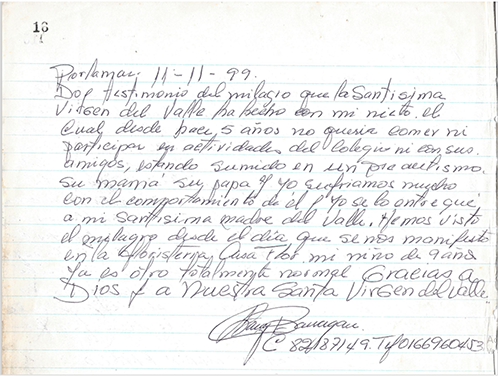 16
Porlamar, 11-11-99.
Doy testimonio del milagro que la Santisima
Virgen del Valle ha hecho con mi nieto, el
cual desde hace 5 años no queria comer ni
participar en actividades del colegio ni con sus
amigos, estando sumido en un pre autismo.
Su mamá su papa y yo sufriamos mucho
con el comportamiento de el y yo se lo entregué
a mi Santisima madre del Valle. Hemos visto
el milagro desde el día que se nos manifesto
en la Cristaleria, Casa Flor mi niño de 9 años
ya es otro totalmente normal Gracias a
Dios y a Nuestra Santa Virgen del Valle.
Barragan.
C 82187149. Tlf 0166960453.